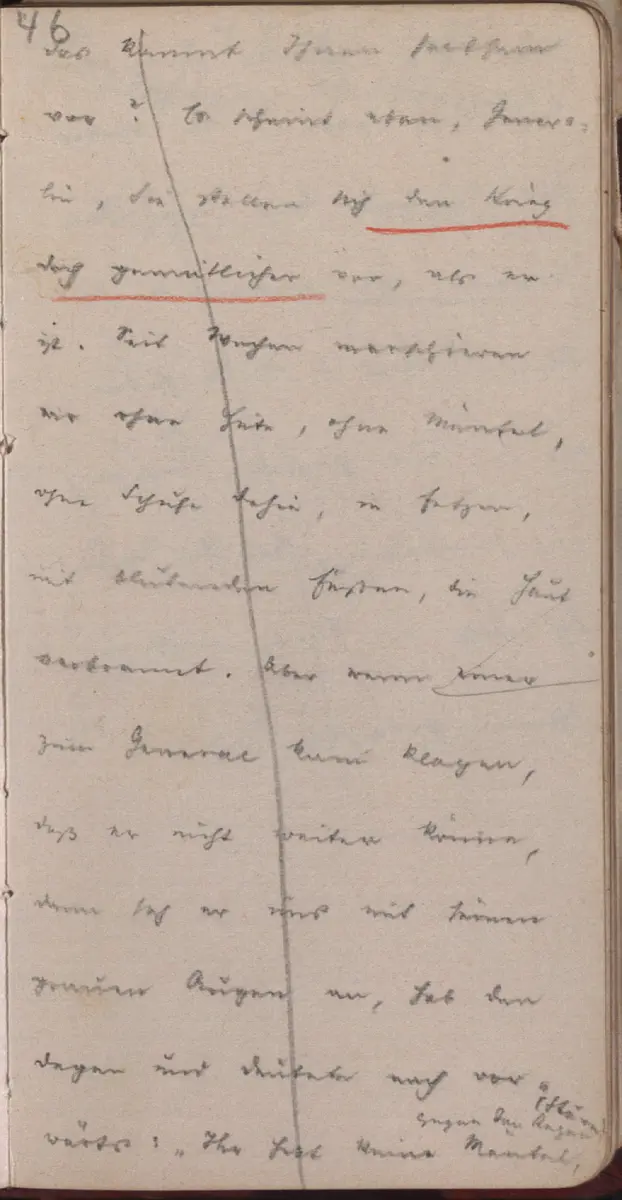 46
das kommt Ihnen seltsam
vor? Es scheint eben, Genera-
lin, Sie stellen sich den Krieg
doch gemütlicher vor, als er
ist. Seit Wochen marschieren
wir ohne Hüte, ohne Mäntel,
ohne Schuhe dahin, in Fetzen,
mit blutenden Füßen, die Haut
verbrannt. Aber wenn einer
zum General kam klagen,
daß er nicht weiter könne,
dann sah er uns mit seinen
grauen Augen an, hob den
Degen und deutete nach vor
gegen den Regen
wärts: „Ihr habt keine Mäntel,